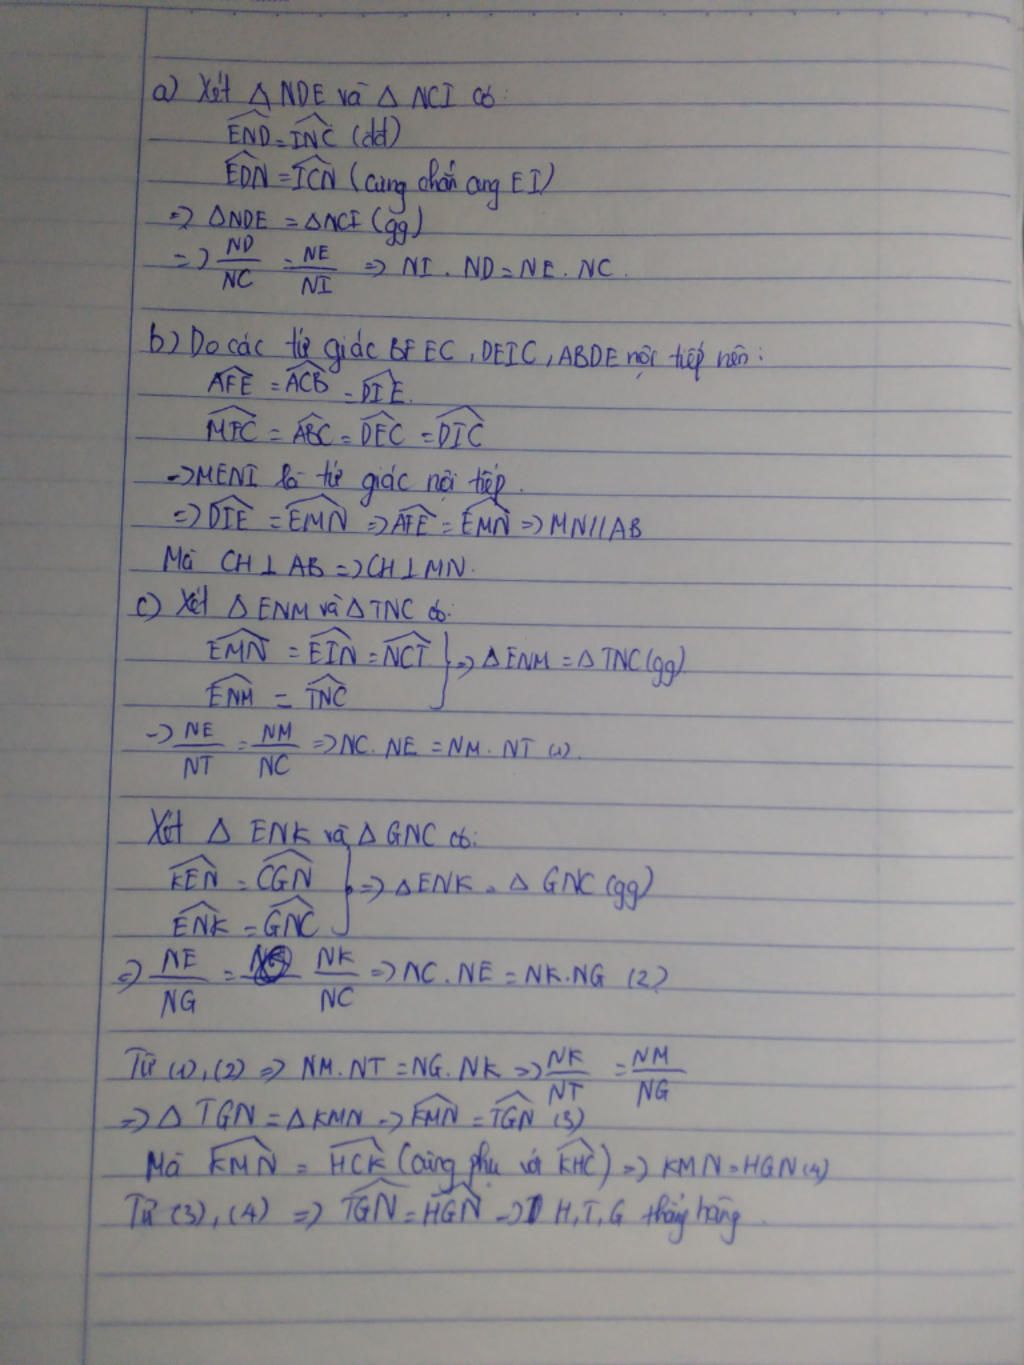 a) Xét △ NDE và △ NCI có:
END = INC (dd)
EDN = ICN (cùng chắn cung EI)
=> △NDE = △NCI (gg)
=> ND/NC = NE/NI => NI . ND = NE . NC.
b) Do các tứ giác BFEC, DEIC, ABDE nội tiếp nên:
AFE = ACB = DIE.
MFC = ABC = DEC = DIC
=> MENI là tứ giác nội tiếp.
=> DIE = EMN => AFE = EMN => MN // AB
Mà CH ⊥ AB => CH ⊥ MN.
c) Xét △ ENM và △ TNC có:
EMN = EIN = NCT } => △ ENM = △ TNC (gg)
ENM = TNC
=> NE/NT = NM/NC => NC . NE = NM . NT (1).
Xét △ ENK và △ GNC có:
KEN = CGN } => △ ENK = △ GNC (gg)
ENK = GNC
=> NE/NG = NK/NC => NC . NE = NK . NG (2)
Từ (1), (2) => NM . NT = NG . NK => NK/NT = NM/NG
=> △ TGN = △ KMN => KMN = TGN (3)
Mà KMN = HCK (cùng phụ với KHC) => KMN = HGN (4)
Từ (3), (4) => TGN = HGN => H, T, G thẳng hàng.